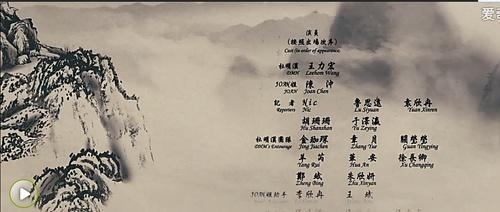 爱
演員
(按照出場次序)
Cast (in order of appearance)
杜明漢 王力宏
DMH Leehom Wang
JOAN姐 陳冲
JOAN Joan Chen
記者 Nic 魯思遠 袁欣冉
Reporters Nic Lu Siyuan Yuan Xinran
胡珊珊 于澤瀛
Hu Shanshan Yu Zeying
杜明漢團隊 金珈琛 章月 關瑩瑩
DMH's Entourage Jing Jiachen Zhang Yue Guan Yingying
羊芮 華安 徐長卿
Yang Rui Hua An Xu Changqing
鄭斌 朱欣妍
Zheng Bing Zhu Xinyan
JOAN姐助手 李欣冉 王斌